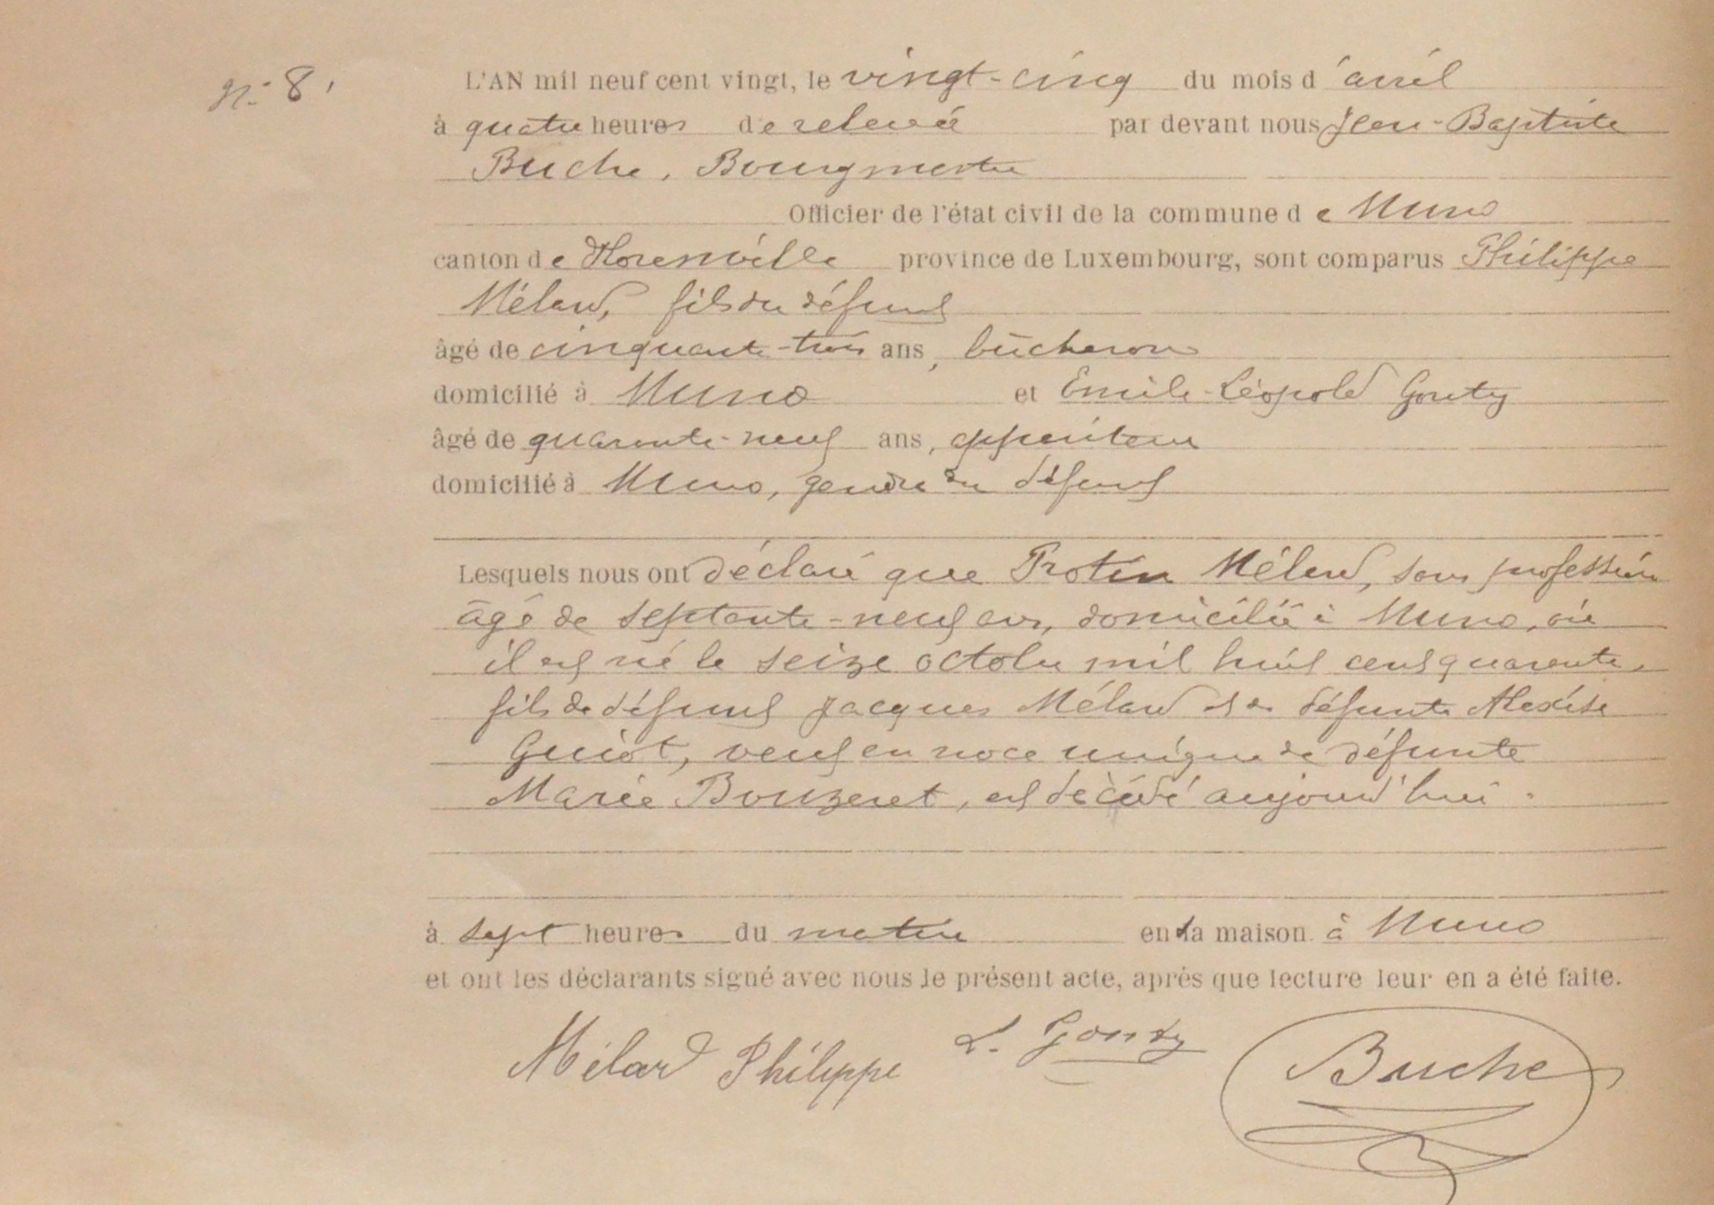 N° 8.
L'AN mil neuf cent vingt, le vingt-cinq du mois d'avril
à quatre heures de relevée par devant nous Jean-Baptiste
Buche, Bourgmestre
Officier de l'état civil de la commune de Muno
canton de Florenville province de Luxembourg, sont comparus Philippe
Mélard, fils du défunt
âgé de cinquante-trois ans, bûcheron
domicilié à Muno et Emile-Léopold Gouty
âgé de quarante-neuf ans, appariteur
domicilié à Muno, gendre du défunt
Lesquels nous ont déclaré que Protin Mélard, sans profession
âgé de septante-neuf ans, domicilié à Muno, où
il est né le seize octobre mil huit cent quarante,
fils de défunt Jacques Mélard et de défunte Alexise
Guiot, veuf en noce unique de défunte
Marie Bouzeret, est décédé aujourd'hui.
à sept heures du matin en sa maison à Muno
et ont les déclarants signé avec nous le présent acte, après que lecture leur en a été faite.
Mélard Philippe L. Gouty Buche